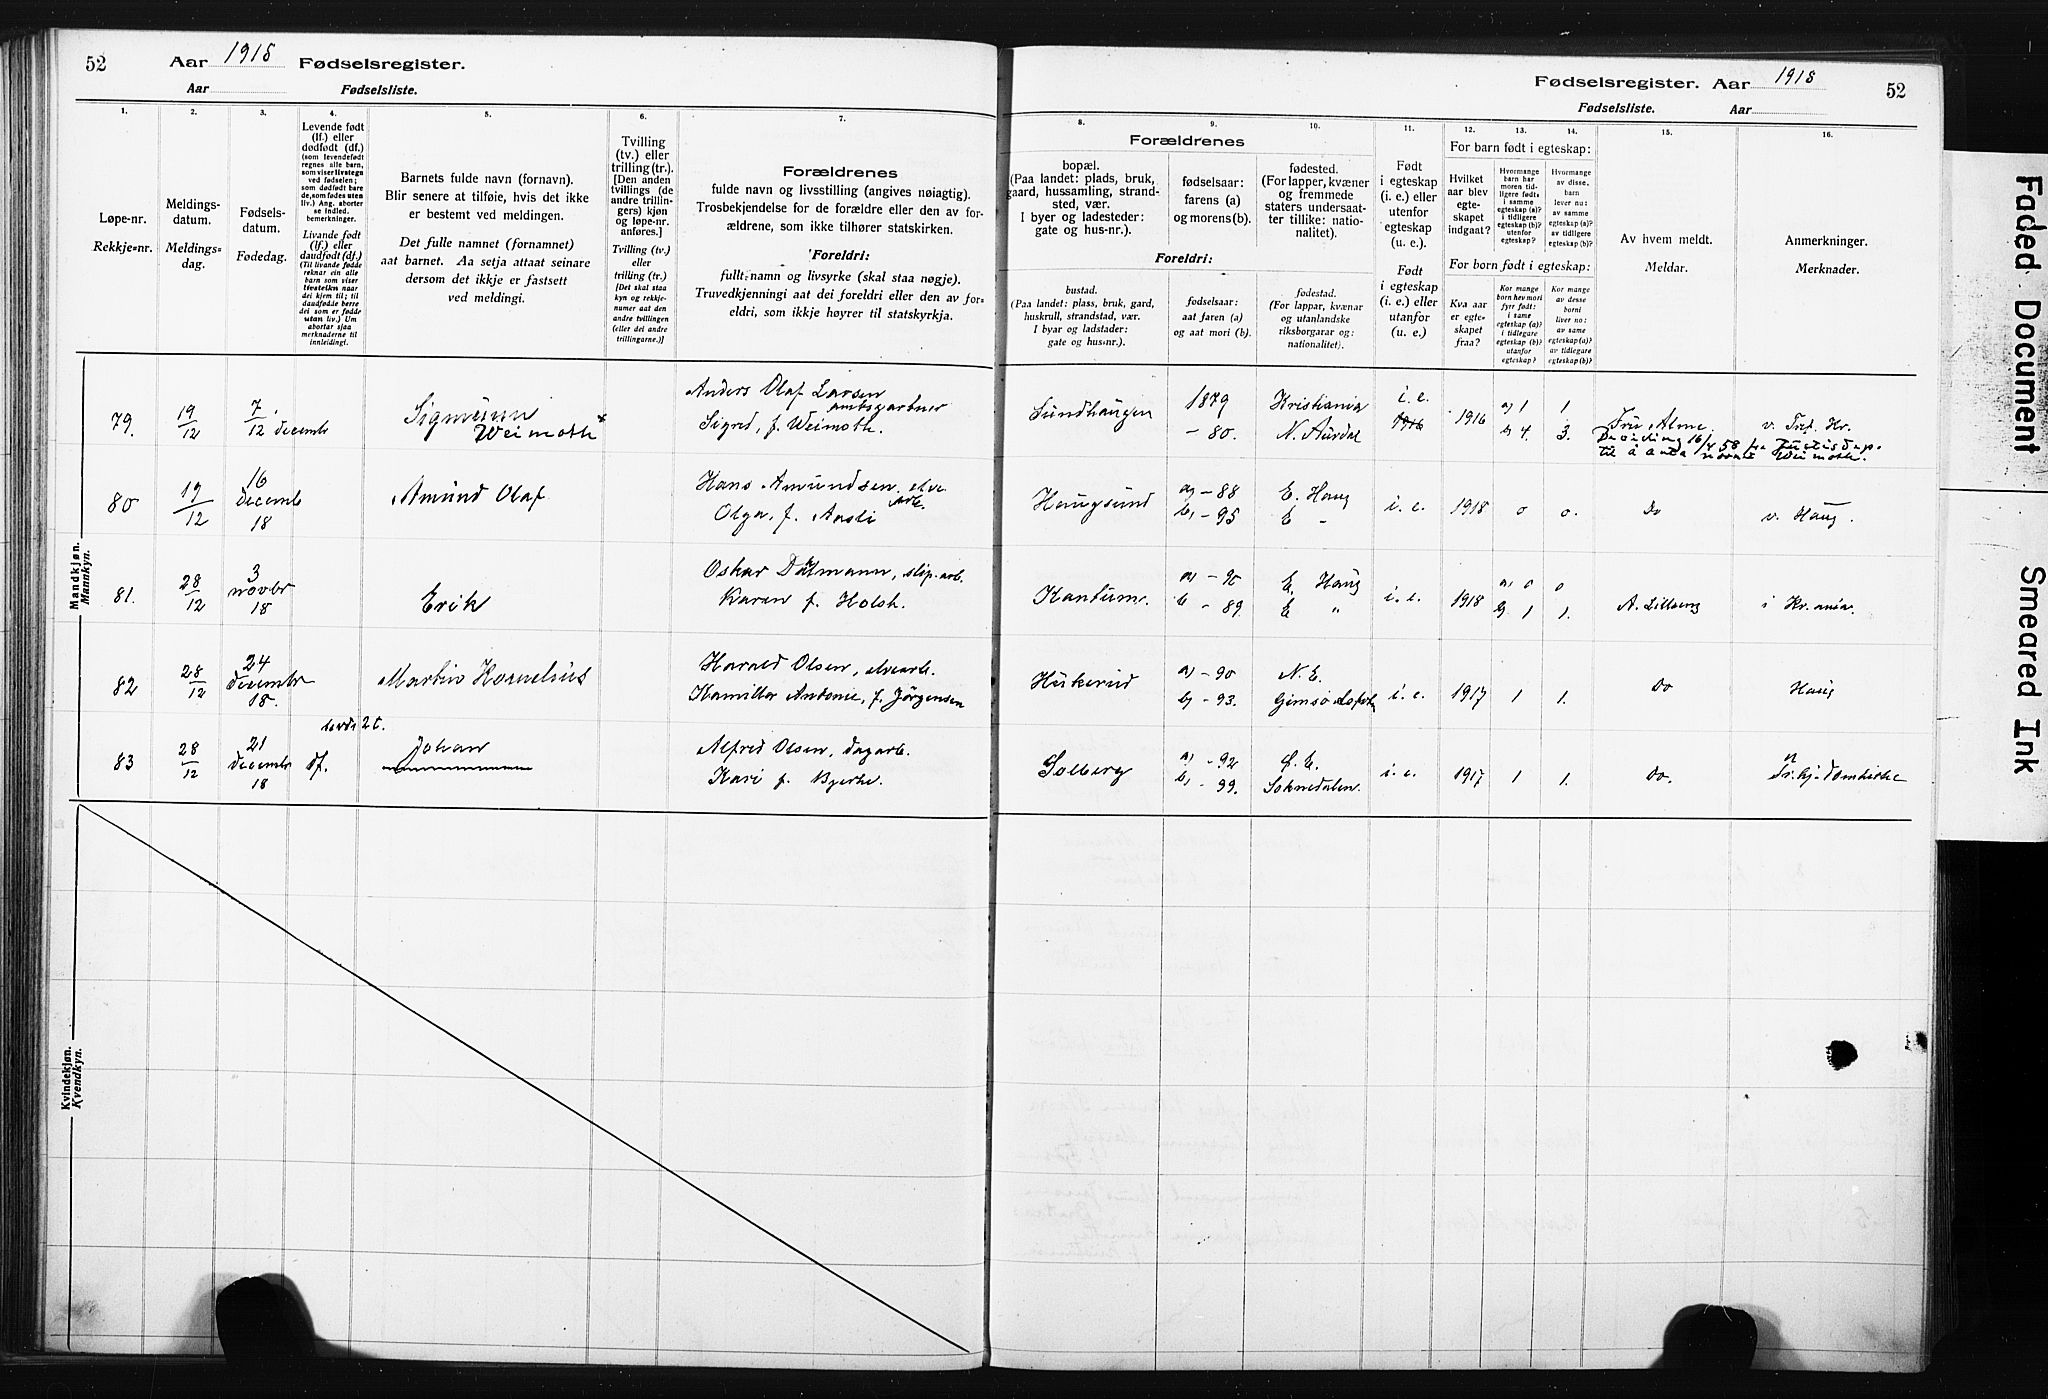 52
Aar 1918 Fødselsregister.
Aar Fødselsliste.
Fødselsregister. Aar 1918
52
Fødselsliste. Aar
1.
2.
3.
4.
5.
6.
7.
8.
9.
10.
11.
12.
13.
14.
15.
16.
Løpe-nr.
Rekkje-nr.
Meldings-
datum.
Meldings-
dag.
Fødsels-
datum.
Fødedag.
Levende født
(lf.) eller
dødfødt (df.)
(som levendefødt
regnes alle barn,
som viser livstegn
ved fødselen;
som dødfødt bare
de, som fødes uten
liv.) Ang. aborter
se indled.
bemerkninger.
Livande født
(lf.) eller
daudfødt (df.)
(Til livande fødde
reknar ein alle
barn som viser
livsteikn naar
dei kjem til; til
daudfødde berre
dei som er fødde
utan liv.) Um
abortar sjaa
merknaderne til
innleidingi.
Barnets fulde navn (fornavn).
Blir senere at tilføie, hvis det ikke
er bestemt ved meldingen.
Det fulle namnet (fornamnet)
aat barnet. Aa setja attaat seinare
dersom det ikkje er fastsett
ved meldingi.
Tvilling
(tv.) eller
trilling (tr.).
[Den anden
tvillings (de
andre trillin-
gers) kjøn
og løpe-nr.
anføres.]
Tvilling (tv.)
eller
trilling (tr.)
[Det skal staa
kyn og rekkje-
numer aat den
andre tvillingen
(eller dei andre
trillingarne.)]
Forældrenes
fulde navn og livsstilling (angives nøiagtig).
Trosbekjendelse for de forældre eller den av for-
ældrene, som ikke tilhører statskirken.
Foreldri:
fullt namn og livsyrke (skal staa nøgje).
Truvedkjenningi aat dei foreldri eller den av for-
eldri, som ikkje høyrer til statskyrkja.
Forældrenes
bopæl.
(Paa landet: plads, bruk,
gaard, hussamling, strand-
sted, vær.
I byer og ladesteder:
gate og hus-nr.).
fødselsaar:
farens (a)
og morens (b).
fødested.
(For lapper, kvæner
og fremmede
staters undersaat-
ter tillike: natio-
nalitet).
Foreldri:
bustad.
(Paa landet: plass, bruk, gard,
huskrull, strandstad, vær.
I byar og ladstader:
gate og hus-nr.).
fødselsaar:
aat faren (a)
og aat mori (b).
fødestad.
(For lappar, kvænar
og utanlandske
riksborgarar og:
nationalitet).
Født
i egteskap
(i. e.) eller
utenfor
egteskap
(u. e.).
Født
i egteskap
(i. e.) eller
utanfor
(u. e.)
For barn født i egteskap:
Hvilket
aar blev
egte-
skapet
indgaat?
Hvormange
barn har
moren tid-
ligere født:
i samme
egteskap (a)?
i tidligere
egteskap (b)?
utenfor
egteskap?
Hvormange
av disse
barn
lever nu:
av samme
egteskap (a)?
av tidligere
egteskap (b)?
For born født i egteskap:
Kva aar
er egte-
skapet
fraa?
Kor mange
born hev mori
fyrr født:
i same
egteskap (a)?
i tidlegare
egteskap (b)?
utanfor
egteskap?
Kor mange
av desse
borni
liver no:
av same
egteskap (a)?
av tidlegare
egteskap (b)?
Av hvem meldt.
Meldar.
Anmerkninger.
Merknader.
Mandkjøn.
Mannkyn.
79.
19/12
7/12 decembr
Sigmunn
Weimoth
Anders Olaf Larsen
amtsgartner
Sigred, f. Weimoth.
Sundhaugen
1879
- 80.
Kristiania
N. Aurdal
i. e.
1916
1916
a) 1
b) 4.
1
3.
Fru Alme
v. Tref. Kr.
til å anta navnet Weimoth.
80
19/12
16
decemb
18
Amund Olaf
Hans Amundsen, elve
arb.
Olga, f. Aasli
Haugsund
a) - 88
b) - 95
E. Haug
E "
i. e.
1918
0
0.
Do
v. Haug.
81.
28/12
3
novbr
18
Erik
Oskar Dåtmann, slip.arb.
Karen f. Holsh.
Kantum.
a) - 90
b - 89.
E. Haug
E "
i. e.
1918
a) 0
b) 1
0
1.
A. Lilleeng
i Kr.ania.
82
28/12
24
decembr
18.
Martin Kornelius
Harald Olsen, elvearb.
Kamilla Antonie, f. Jørgensen
Hukerud
a) - 90
b) - 93.
N. E.
Gimsø Lofoten
i. e.
1917
1
1.
Do
Haug
83
28/12
21
decembr
18
df.
Johan
Alfred Olsen, dagarb.
Kari f. Bjerke.
Solberg
a) - 92
b) - 99.
Ø. E.
Soknedalen.
i. e.
1917
1
1.
Do.
Kvindekjøn.
Kvendkyn.
Faded Document
Smeared Ink